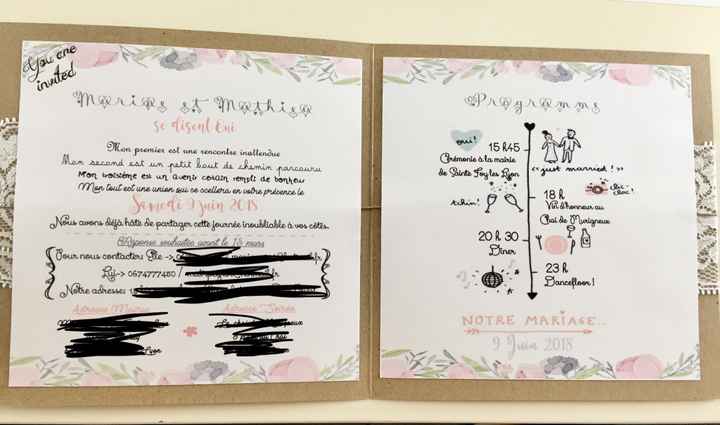 You are
invited
Marine et Mathieu
se disent oui
Mon premier est une rencontre inattendue
Mon second est un petit bout de chemin parcouru
Mon troisième est un avenir certain rempli de bonheur
Mon tout est une union qui se scellera en votre présence le
Samedi 9 juin 2018
Nous avons déjà hâte de partager cette journée inoubliable à vos côtés.
Réponse souhaitée avant le 15 mars
Pour nous contacter: Elle ->
Lui-> 0674777480 /
Notre adresse:
Adresse Mairie
Adresse Soirée
Lyon
Programme
oui!
15 h45
Cérémonie à la mairie
de Sainte Foy les Lyon
« just married ! »
tchin!
18 h
clic-
clac!
Vin d'honneur au
Chai de Murigneux
20 h 30
Dîner
23 h
Dancefloor!
NOTRE MARIAGE..
9 Juin 2018